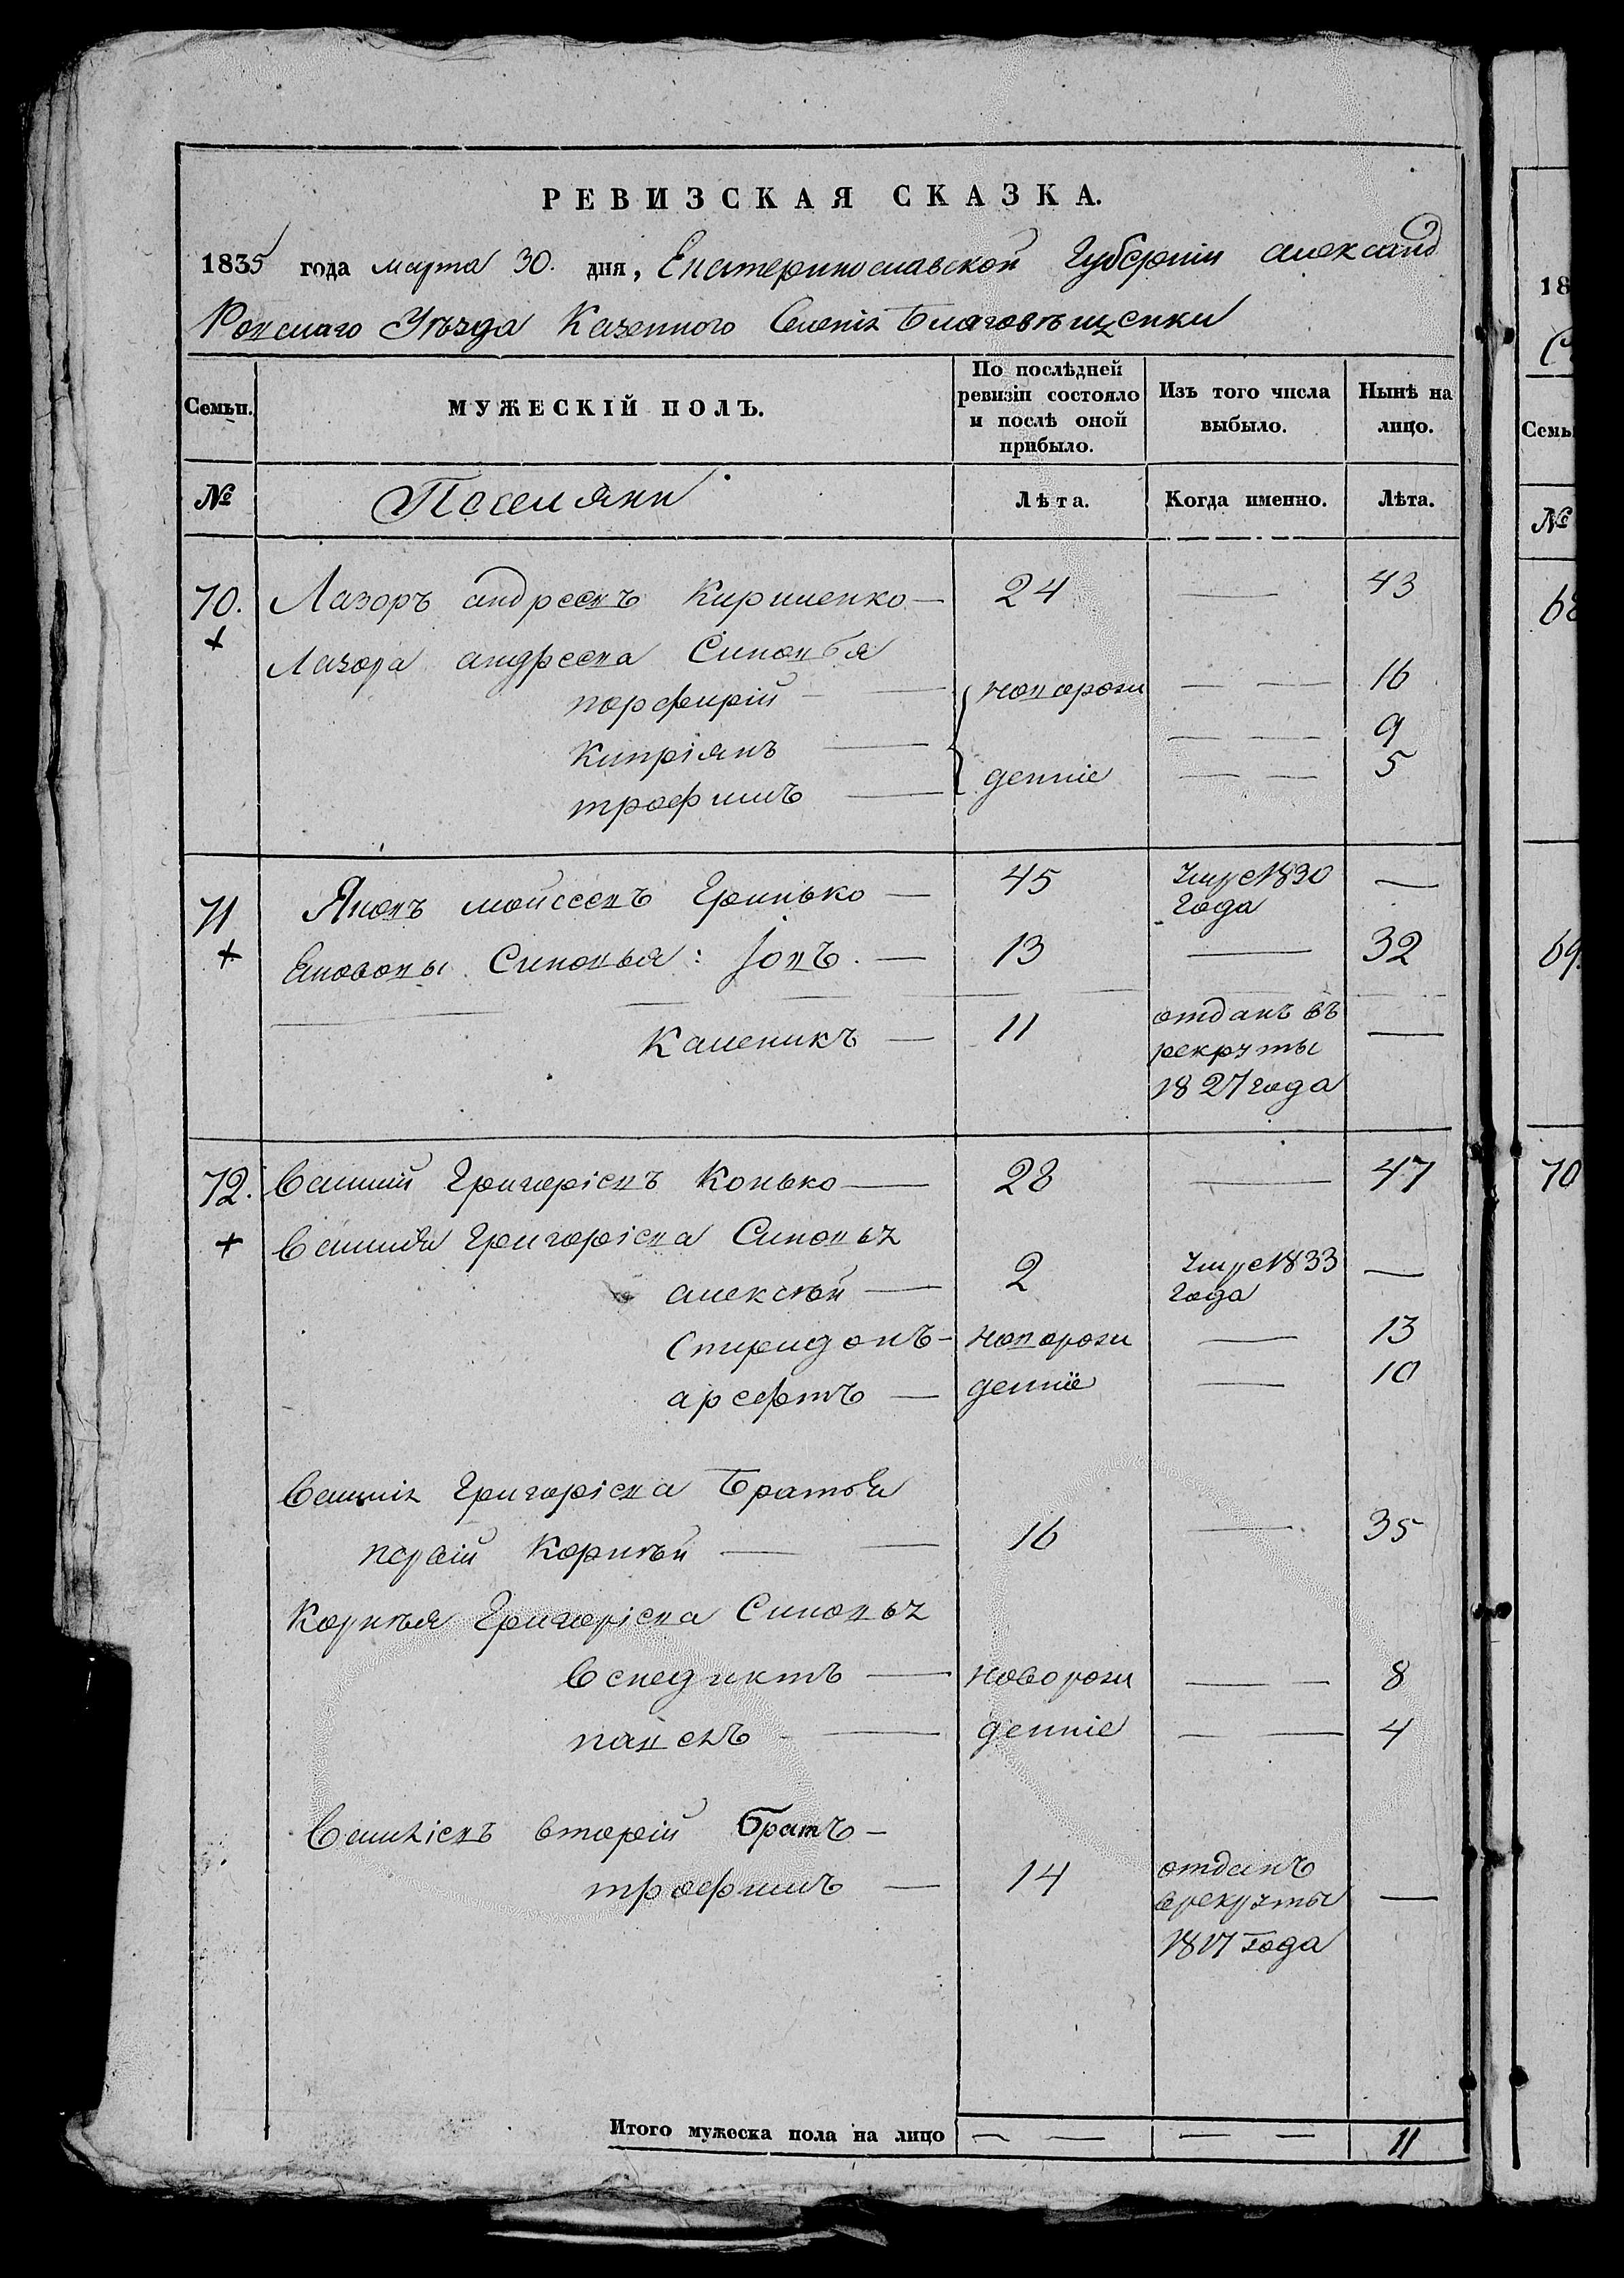 РЕВИЗСКАЯ СКАЗКА.
1835 года марта 30. дня, Екатеринославской Губерніи александ
Ровскаго Уѣзда Казенного Селенія Благовѣщенки
Семьи.
МУЖЕСКІЙ ПОЛЪ.
По послѣдней ревизіи состояло и послѣ оной прибыло.
Изъ того числа выбыло.
Нынѣ на лицо.
№
Поселяни
Лѣта.
Когда именно.
Лѣта.
70. Лазоръ андреевъ Кириленко — 24 — 43
Лазора андреева Синовья
порфирій — новорож — — 16
Кипріянъ — — — 9
трофимъ — денніе — — 5
71 Яковъ мойсеевъ Гринько — 45 Умре 1830 —
Года
Яковавы Синовья: Іовъ. — 13 — 32
Каленикъ — 11 отданъ въ —
рекруты
1827 года
72. Василий Григоріевъ Конько — 28 — 47
Василия Григоріева Синовья
алексѣй — 2 Умре 1833 —
Года
Спиридонъ - новорож — 13
арефтъ — денніе — 10
Василія Григоріева Братья
первій Корнѣй — — 16 — 35
Корнѣя Григоріева Синовья
Венедиктъ — новорож — — 8
павелъ — денніе — — 4
Василіевъ вторій братъ -
трофимъ — 14 отданъ —
врекруты
1817 Года
Итого мужеска пола на лицо — — — — 11
18
Семьи
№
68
69.
70